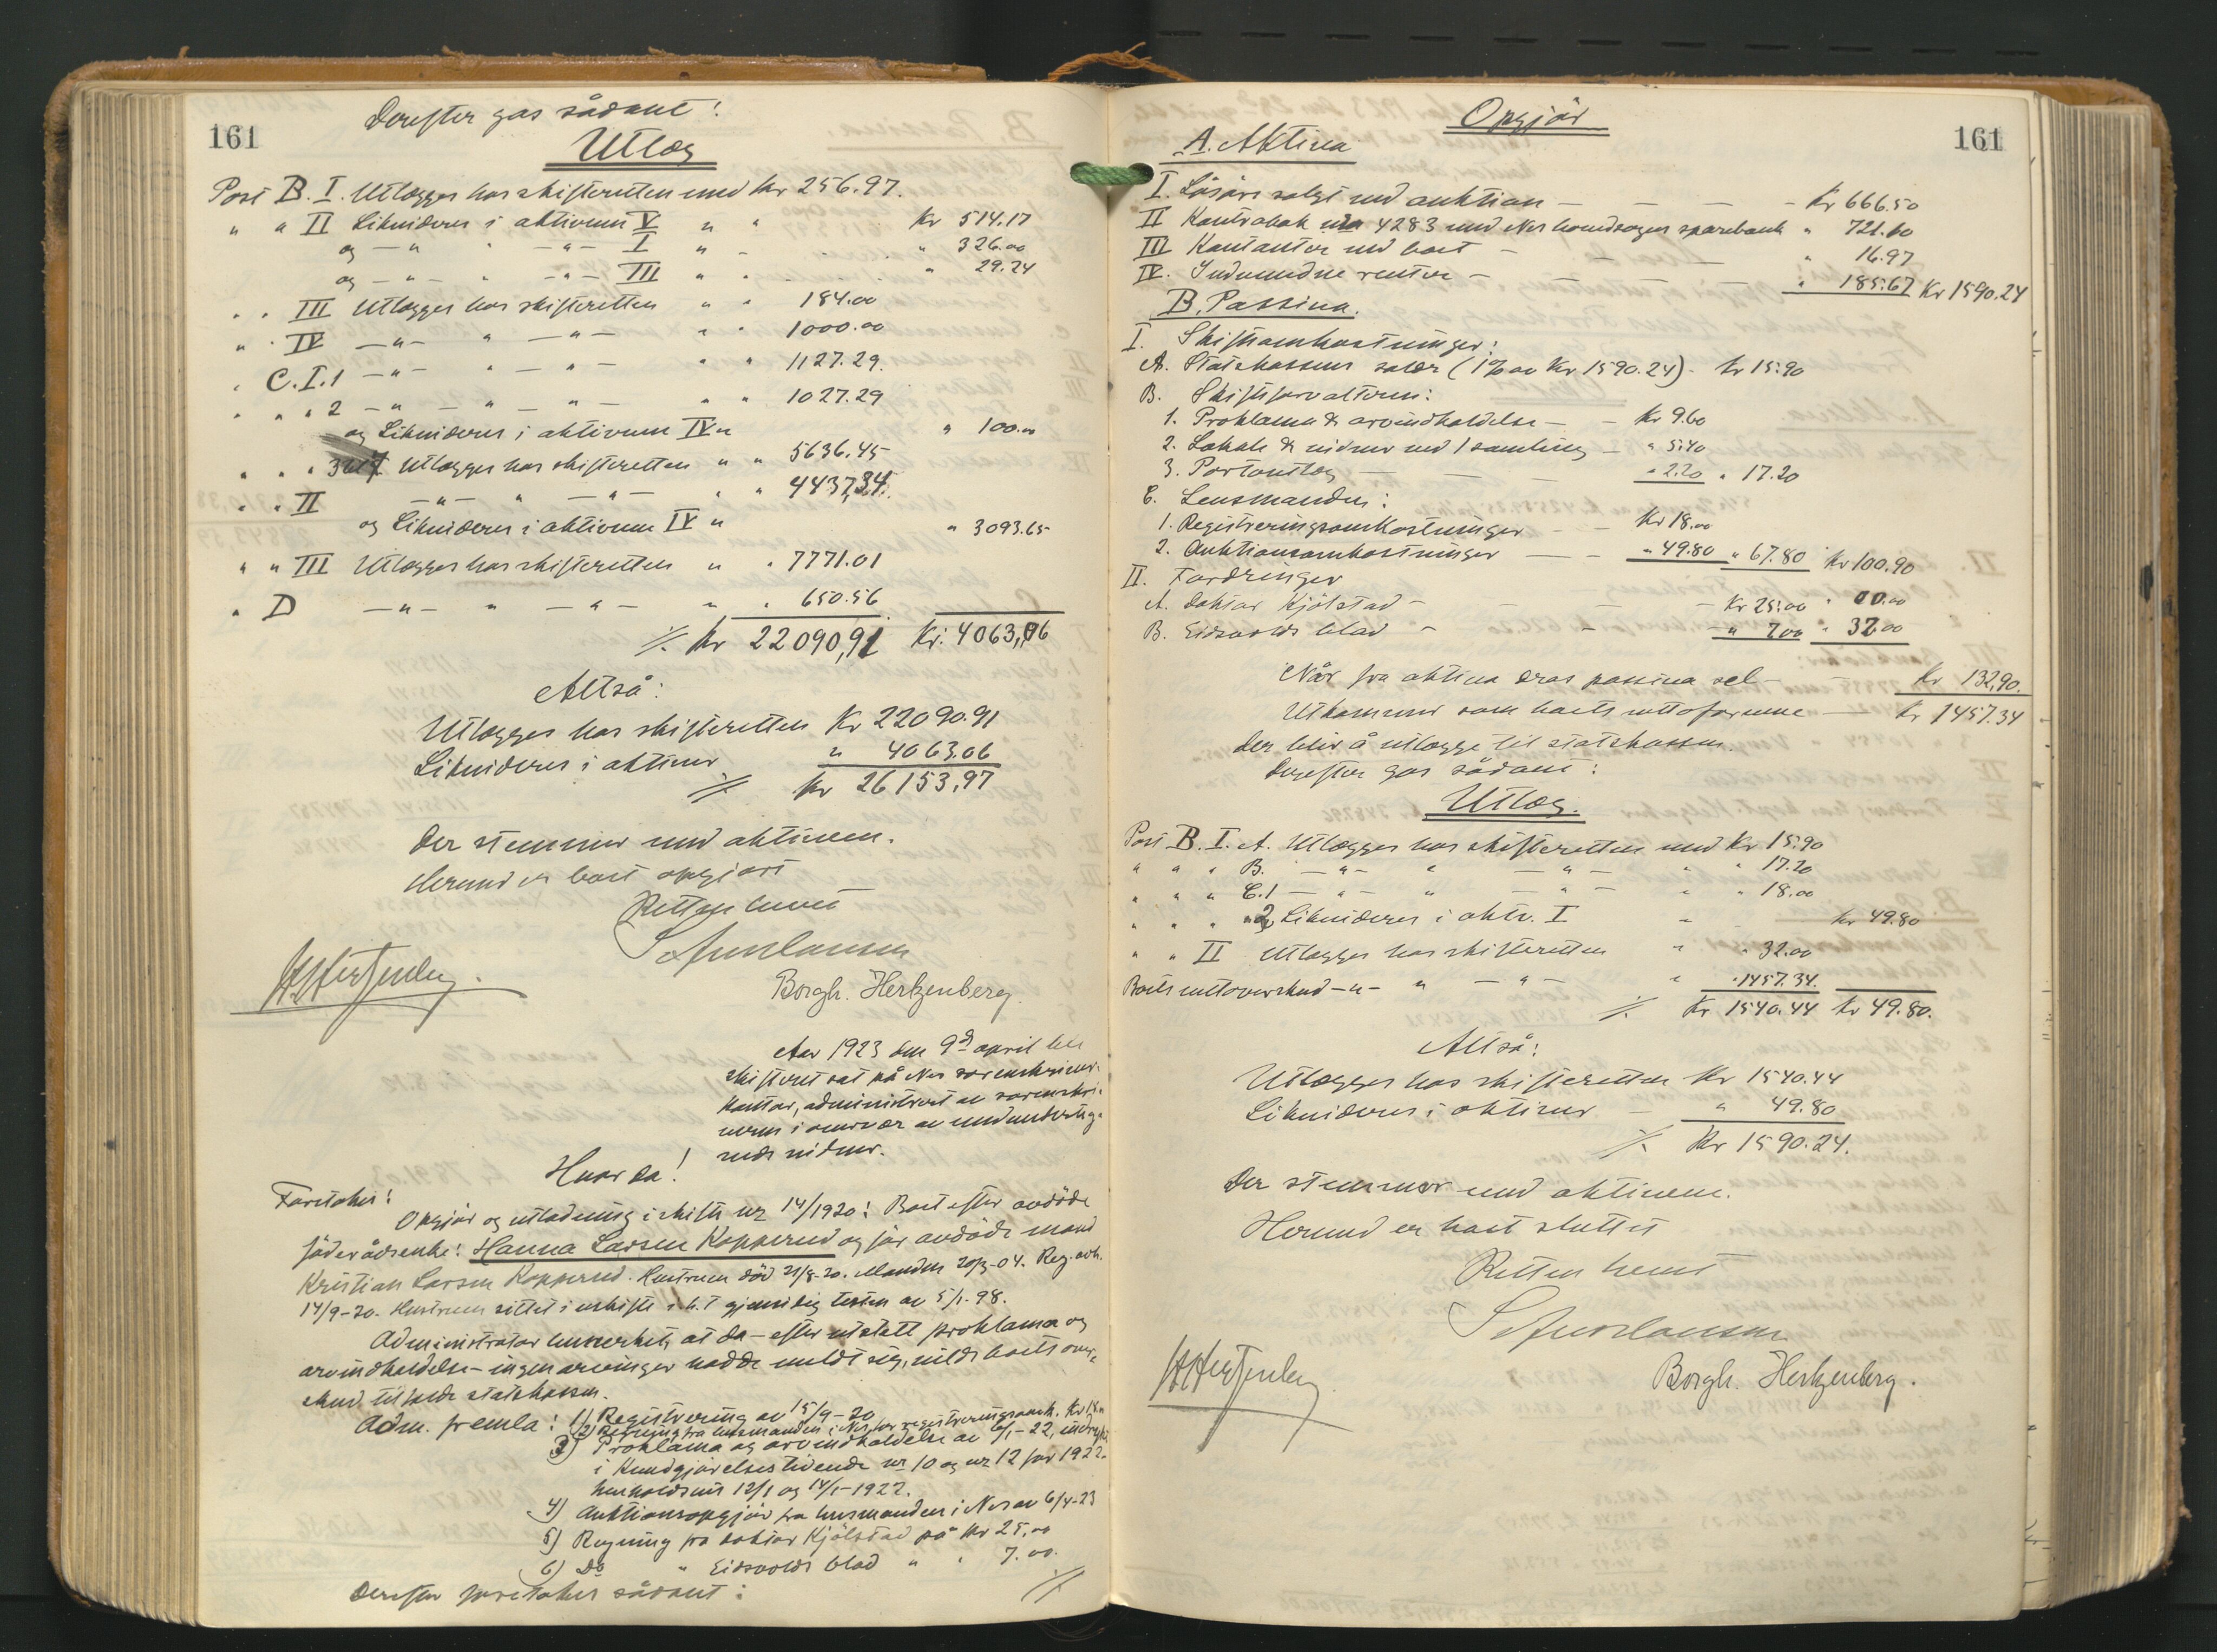 161
Derefter gøs sådant:
Utlæg
Post B. I. Utlægges hos skifteretten med kr 256.97.
" " II Likvideres i aktivum V " " kr 514.17
og — " " — " — I " " 326.00
og — " — " — " — III " " 29.24
" " III Utlægges hos skifteretten " " 184.00
" " IV — " — " — " — " " 1000.00
" C. I. 1 — " — " — " — " " 1127.29.
" " " 2 — " — " — " — " " 1027.29
og Likvideres i aktivum IV " " 100.00
" " " Utlægges hos skifteretten " " 5636.45
" " II — " — " — " — " " 4437,34.
og Likvideres i aktivum IV " " 3093.65
" " III Utlægges hos skifteretten " " 7771.01
" D — " — " — " — " " 650.56
./. Kr 22090,91 Kr. 4063,06
Altså:
Utlægges hos skifteretten Kr 22090.91
Likvideres i aktiver " 4063.06
./. Kr 26153,97
Der stemmer med aktivem.
Hermed er boet opgjort
Retten hevet
Borgh. Hertzenberg.
Aar 1923 den 9d april ble
skifteret sat på Nes sorenskriver-
kontor, administrert av sorenskri-
veren i overvær av medunderteg-
nede vidner.
Hvorda!
Foretokes:
Opgjør og utlodning i skifte nr 14/1920: Boet efter avdøde
føderådsenke: Hanna Larsen Kopperud og før avdøde mand
Kristian Larsen Kopperud. Hustruen død 21/8-20. Manden 20/3-04. Reg. avh.
14/9-20. Hustruen sittet i uskifte i h. t gjensidig testm av 5/1-98.
Administrator bemerket, at da — efter utstett proklama og
arvindkaldelse — ingen arvinger hadde meldt sig, vilde boets over-
skud tilfalde statskassen.
Adm. fremla: 1) Registrering av 15/9-20
2) Regning fra lensmanden i Nes for registreringsomk. Kr 18.00
3) Proklama og arvindkaldelse av 6/1-22, indrykt
i Kundgjørelsestidende nr 10 og nr 12 for 1922.
henholdsvis 12/1 og 14/1-1922.
4) Auktionsopgjør fra lensmanden i Nes av 6/4-23
5) Regning fra doktor Kjølstad på kr 25,00
6) Do " Eidsvolds blad " " 7.00.
Derefter foretokes sådant:
./.
161
Opgjør
A. Aktiva
I. Løsøre solgt ved auktion — — — — Kr 666.50
II Kontrabok nr 4283 med Nes hovedsogns sparebank " 721.10
III Kontanter ved boet — — — " 16.97
IV. Indvundne renter — — — — " 185.67 Kr 1590.24
B. Passiva.
I. Skifteomkostninger:
A. Statskassens salær (1% av Kr 1590.24) - kr 15.90
B. Skifteforvalteren:
1. Proklama & arvindkaldelse — — Kr 9.60
2. Lokale & vidner ved 1 samling — " 5.40
3. Portoutlæg — — " 2.20 " 17.20
C. Lensmanden:
1. Registreringsomkostninger — — Kr 18.00
2. Auktionsomkostninger — — " 49.80 " 67.80 Kr 100.90
II. Fordringer
A. Doktor Kjølstad — — — — Kr 25.00
B. Eidsvolds blad — — — " 7.00 " 32.00
Når fra aktiva dras passiva sel — — Kr 132,90.
Utkommer som boets nettoformue — kr 1457.34
der blir å utlægge til statskassen.
Derefter gøs sådant:
Utlæg.
Post B. I. A. Utlægges hos skifteretten med Kr 15.90
" " " B. — " — " — " — " " 17.20
" " " C. 1 — " — " — " — " " 18.00
" " " " 2, Likvideres i aktv. I " kr 49.80
" " II Utlægges hos skifteretten " " 32.00
Boets nettooverskud — " — " — " — " " 1457.34.
./. Kr 1540.44 kr 49.80.
Altså:
Utlægges hos skifteretten Kr 1540.44
Likvideres i aktiver — " 49.80
./. Kr 1590.24.
Der stemmer med aktivem.
Hermed er boet sluttet
Retten hevet
Borgh. Hertzenberg.